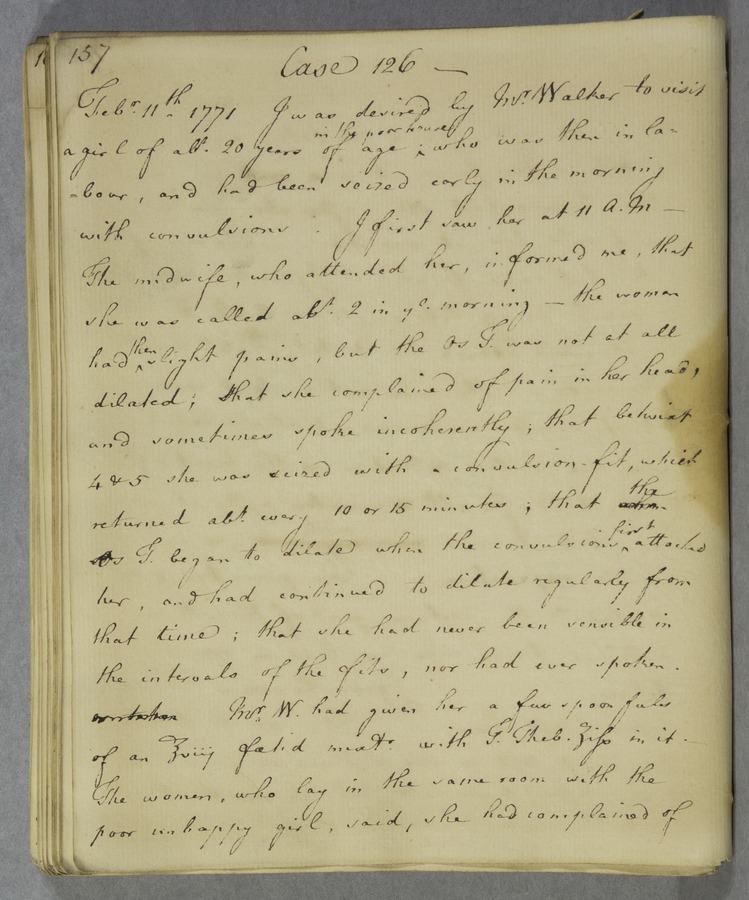 157
Case 126 —
Febr. 11th 1771 I was desired by Mr. Walker to visit
in the poorhouse
a girl of abt. 20 years of age ‸ who was then in la-
-bour, and had been seized early in the morning
with convulsions. I first saw her at 11 A.M —
The midwife, who attended her, informed me, that
she was called abt. 2 in ye. morning — the woman
then
had ‸ slight pains, but the Os T. was not at all
dilated; that she complained of pain in her head,
and sometimes spoke incoherently; that betwixt
4 & 5 she was seized with a convulsion-fit, which
the
returned abt. every 10 or 15 minutes; that
first
Os T. began to dilate when the convulsions ‸ attacked
her, and had continued to dilate regularly from
that time; that she had never been sensible in
the intervals of the fits, nor had ever spoken.
Mr. W. had given her a few spoonfuls
of an ℥viij fœtid mixt. with T. Theb. ʒiſs in it —
The women, who lay in the same room with the
poor unhappy girl, said, she had complained of